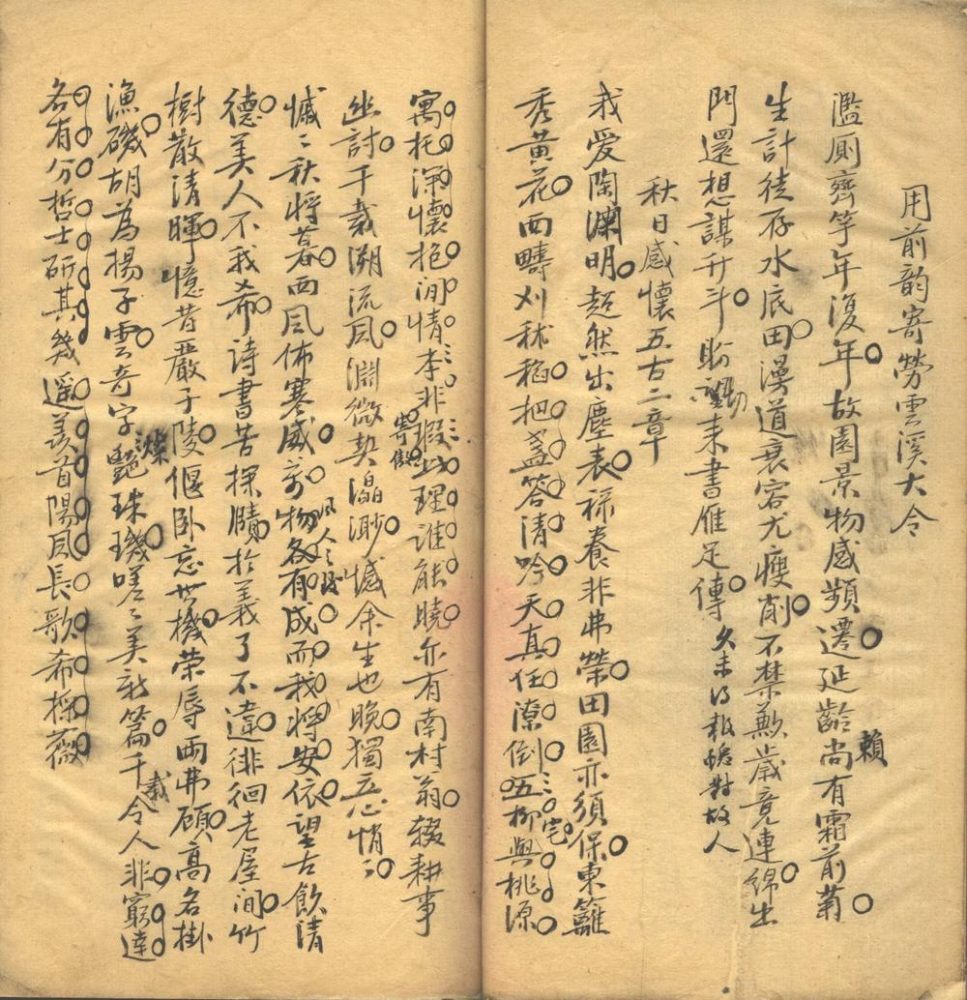 用前韵寄勞雲溪大令
濫厠齊竽年復年故園景物感頻遷延齡尚有霜前菊
賴
生計徒存水底田漫道衰容尤瘦削不禁歉歲竟連綿出
門還想謀升斗盼斷耒書雁足傳久未得報牋對故人
秋日感懷五古二章
我爱陶瀾明超然出塵表禄養非弗榮田園亦須保東籬
秀黄花西疇刈秫稻把盞答清吟天真任潦倒五柳與桃源
宅
寓托深懷抱閒情李非寄傲理誰能曉亦有南村翁輟耕事
幽討千載溯流风淵微契瀛渺憾余生也晚獨立心悄〻
憾〻秋将暮西風佈寒威方物各有成而我将安依望古飲清
德美人不我希詩書苦探賾於義了不違徘徊老屋间竹
樹散清暉憶昔嚴子陵偃卧忘世機荣辱两弗顧高名掛
漁磯胡為揚子雲奇字艷珠璣嗟〻美新篇千令人非窮達
燦
載
各有分哲士研其幾遥羡首陽風長歌希採薇